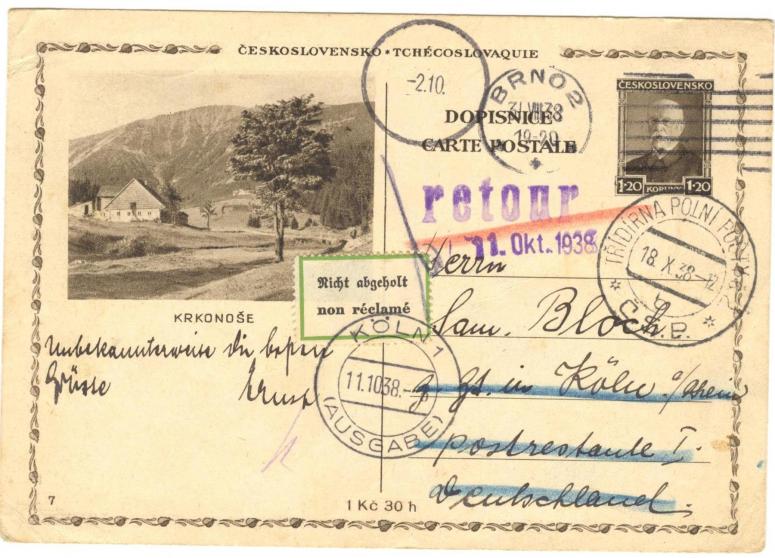 ČESKOSLOVENSKO • TCHÉCOSLOVAQUIE
-2.10.
BRNO 2
31.VIII.38
19-20
ČESKOSLOVENSKO
1·20 KORUNY 1·20
DOPISNICE
CARTE POSTALE
retour
11. Okt. 1938
TŘÍDÍRNA POLNÍ POŠTY
18.X.38-12
Č.S.P.
Nicht abgeholt
non réclamé
KRKONOŠE
KÖLN 1
11.10.38.-
(AUSGABE)
Unbekannterweise die besten
Grüsse
Ernst
Herrn
Sam. Bloch
z. Zt. in Köln a/Rhein
postrestante I.
Deutschland.
7
1 Kč 30 h